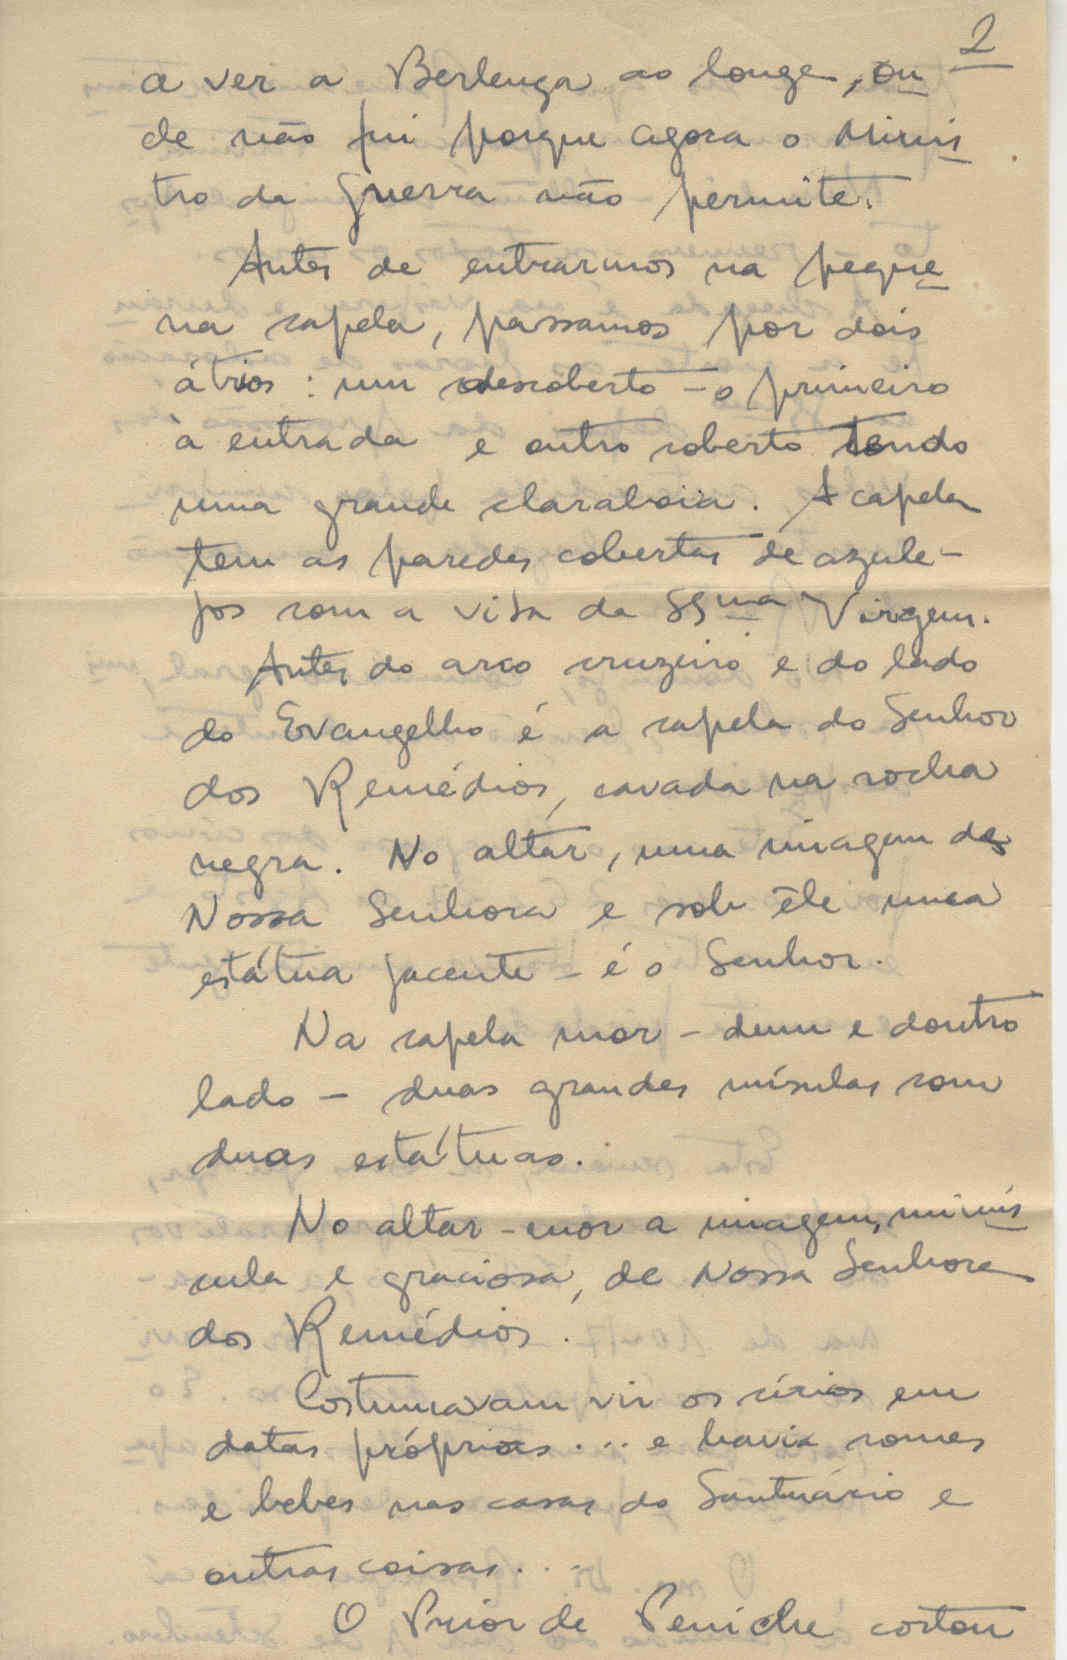 2
a ver a Berlenga ao longe, on
de não fui porque agora o Minis
tro da Guerra não permite.
Antes de entrarmos na peque
na capela, passamos por dois
átrios: um descoberto - o primeiro
à entrada e outro coberto tendo
uma grande claraboia. A capela
tem as paredes cobertas de azule-
jos com a vida da SSma Virgem.
Antes do arco cruzeiro e do lado
do Evangelho é a capela do Senhor
dos Remédios, cavada na rocha
negra. No altar, uma imagem de
Nossa Senhora e sob êle uma
estátua jacente - é o Senhor.
Na capela mor - dum e doutro
lado - duas grandes mísulas com
duas estátuas.
No altar-mor a imagem, minús
cula e graciosa, de Nossa Senhora
dos Remédios.
Costumavam vir os círios em
datas próprias... e havia comes
e bebes nas casas do Santuário e
outras coisas...
O Prior de Peniche cortou